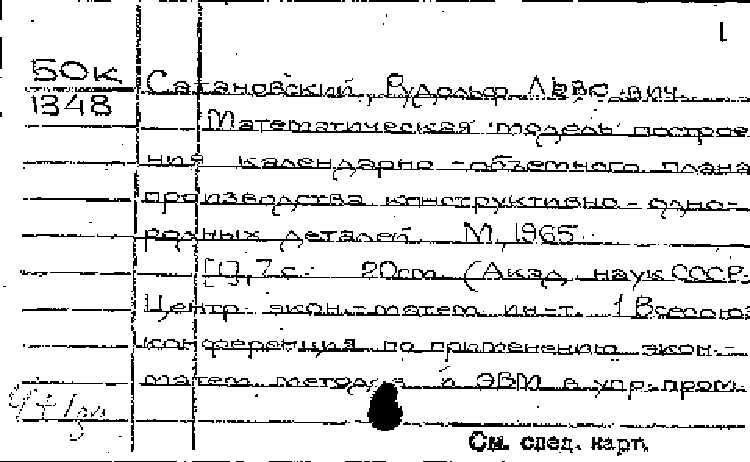 1
БОК
1348
Сатановский, Рудольф Львович
Математическая модель построе
ния календарно-объемного плана
производства конструктивно-одно-
родных деталей. М, 1965.
[1], 7 с. 20 cm. (Акад. наук СССР.
Центр. экон.-матем. ин-т. 1 Всесоюз
конференция по применению экон.-
матем. методов и ЭВМ в упр. пром.
См. след. карт.